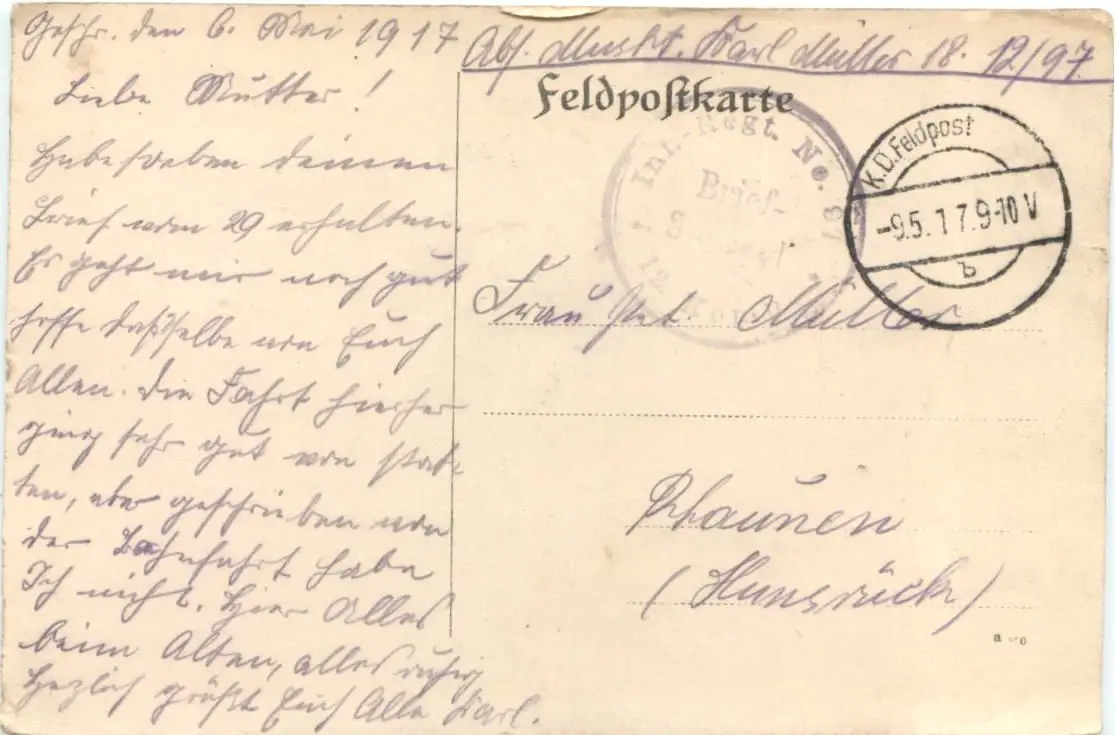 Geschr. den 6. Mai 1917
Liebe Mutter!
Habe soeben deinen
Brief vom 29 erhalten.
Es geht mir noch gut
hoffe dasselbe von Euch
Allen. Die Fahrt hierher
ging sehr gut von stat-
ten, aber geschrieben von
der Bahnfahrt habe
Ich nicht. Hier Alles
beim Alten, alles ruhig
Herzlich grüßt Euch Alle Karl.
Abs. Muskt. Karl Müller 18. 12/97.
Feldpostkarte
Inf.-Regt. No. 97
Brief-
12. Komp
K.D. Feldpost
-9.5.17.9-10 V
b
Frau Pet Müller
Rhaunen
(Hunsrück)